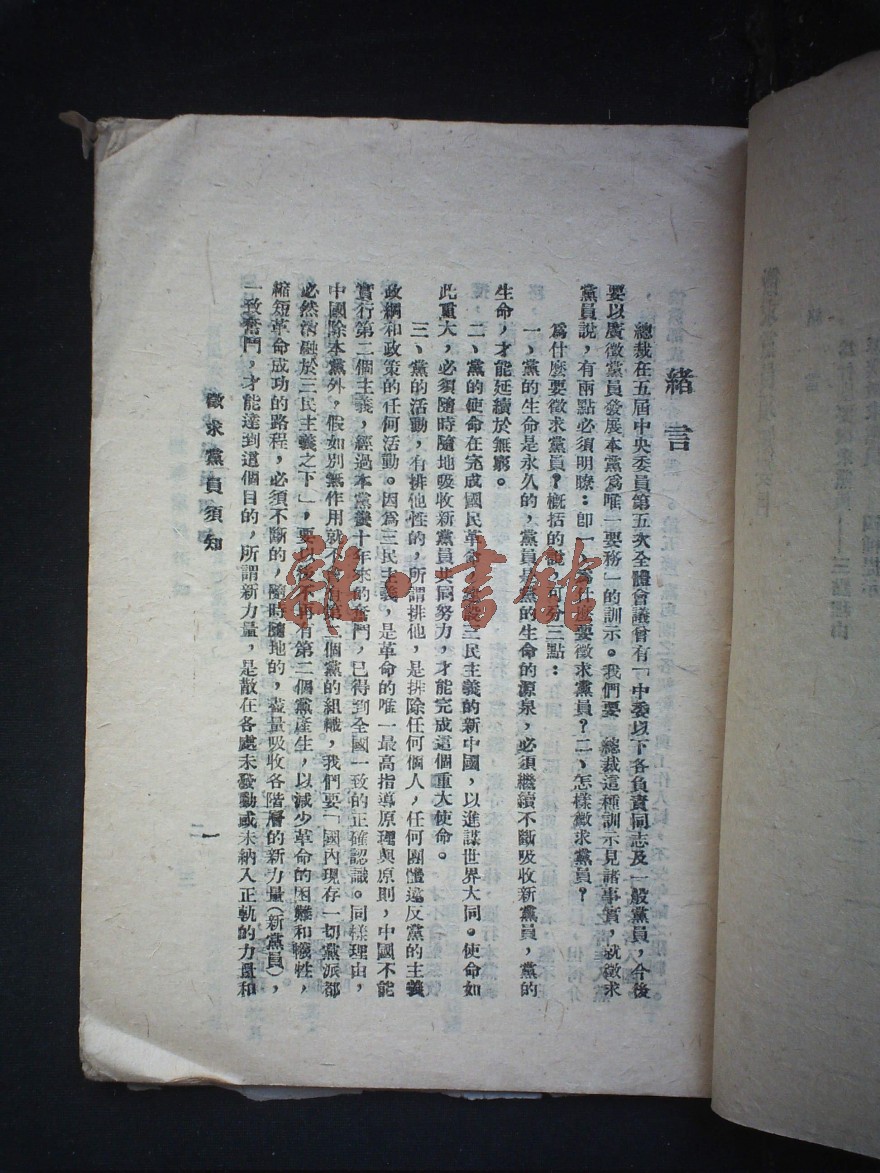 緒言
總裁在五屆中央委員第五次全體會議曾有「中委以下各負責同志及一般黨員，今後
要以廣徵黨員發展本黨爲唯一要務」的訓示。我們要　總裁這種訓示見諸事實，就徵求
黨員說，有兩點必須明瞭：卽一、爲什麼要徵求黨員？二、怎樣徵求黨員？
爲什麼要徵求黨員？槪括的說，可分三點：
一、黨的生命是永久的，黨員是黨的生命的源泉，必須繼續不斷吸收新黨員，黨的
生命，才能延續於無窮。
二、黨的使命在完成國民革命，建設三民主義的新中國，以進謀世界大同。使命如
此重大，必須隨時隨地吸收新黨員共同努力，才能完成這個重大使命。
三、黨的活動，有排他性的，所謂排他，是排除任何個人，任何團體違反黨的主義
政綱和政策的任何活動。因爲三民主義，是革命的唯一最高指導原理與原則，中國不能
實行第二個主義，經過本黨幾十年來的奮鬥，已得到全國一致的正確認識。同樣理由，
中國除本黨外，假如別無作用就不會有第二個黨的組織，我們要「國內現存一切黨派都
必然消融於三民主義之下」，要以後不再有第二個黨產生，以減少革命的困難和犧牲，
縮短革命成功的路程，必須不斷的，隨時隨地的，盡量吸收各階層的新力量（新黨員），
一致奮鬥，才能達到這個目的，所謂新力量，是散在各處未發動或未納入正軌的力量和
徵求黨員須知
一
雜·書館